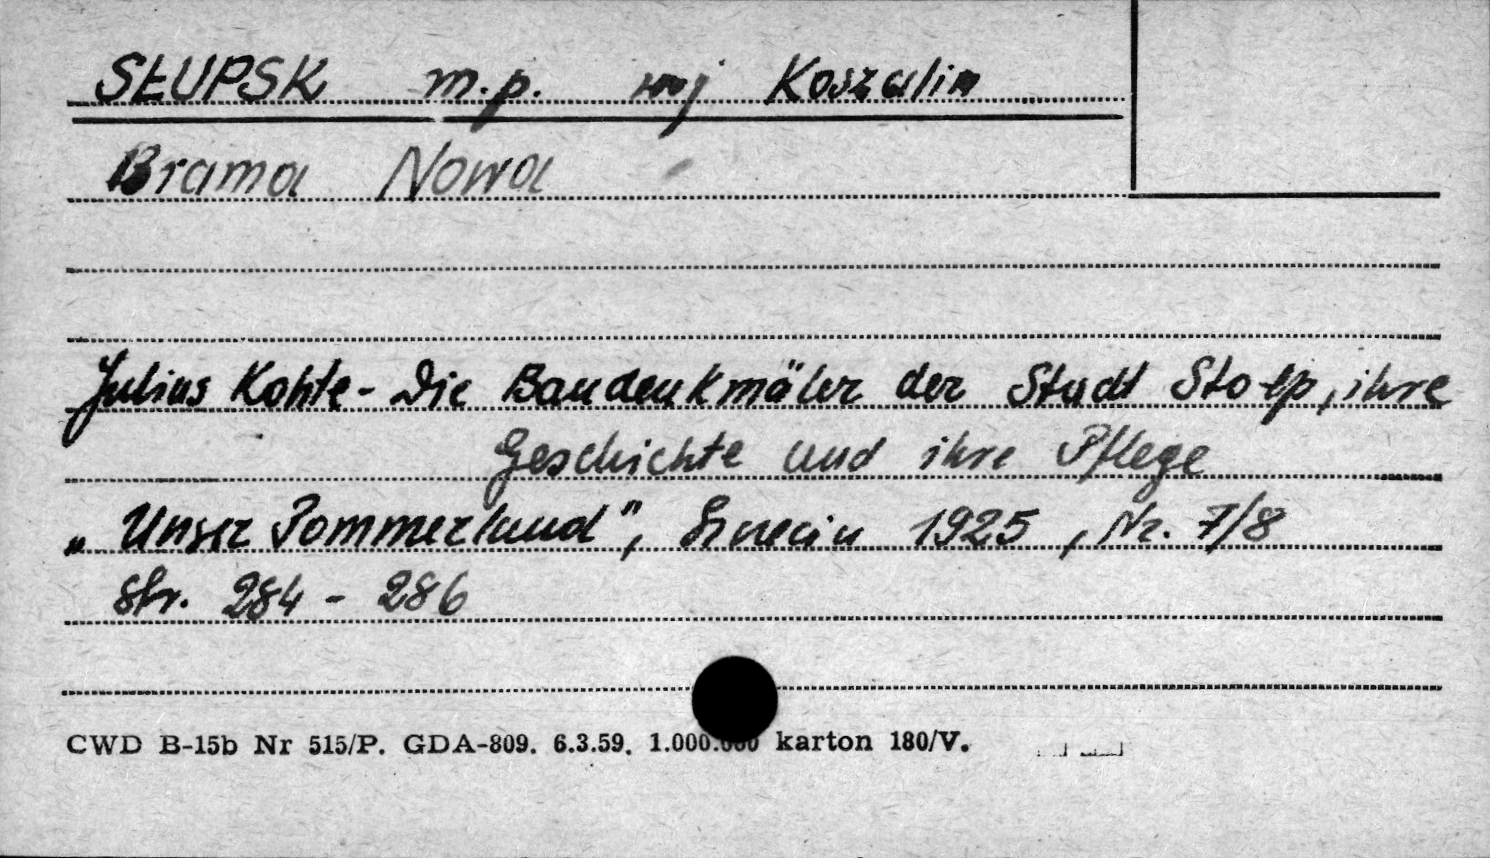 SŁUPSK m.p. woj Koszalin
Brama Nowa
Julius Kohte - Die Baudenkmäler der Stadt Stolp, ihre
Geschichte und ihre Pflege
„Unser Pommerland", Szczecin 1925, Nr. 7/8
Str. 284 - 286
CWD B-15b Nr 515/P. GDA-809. 6.3.59. 1.000.000 karton 180/V.